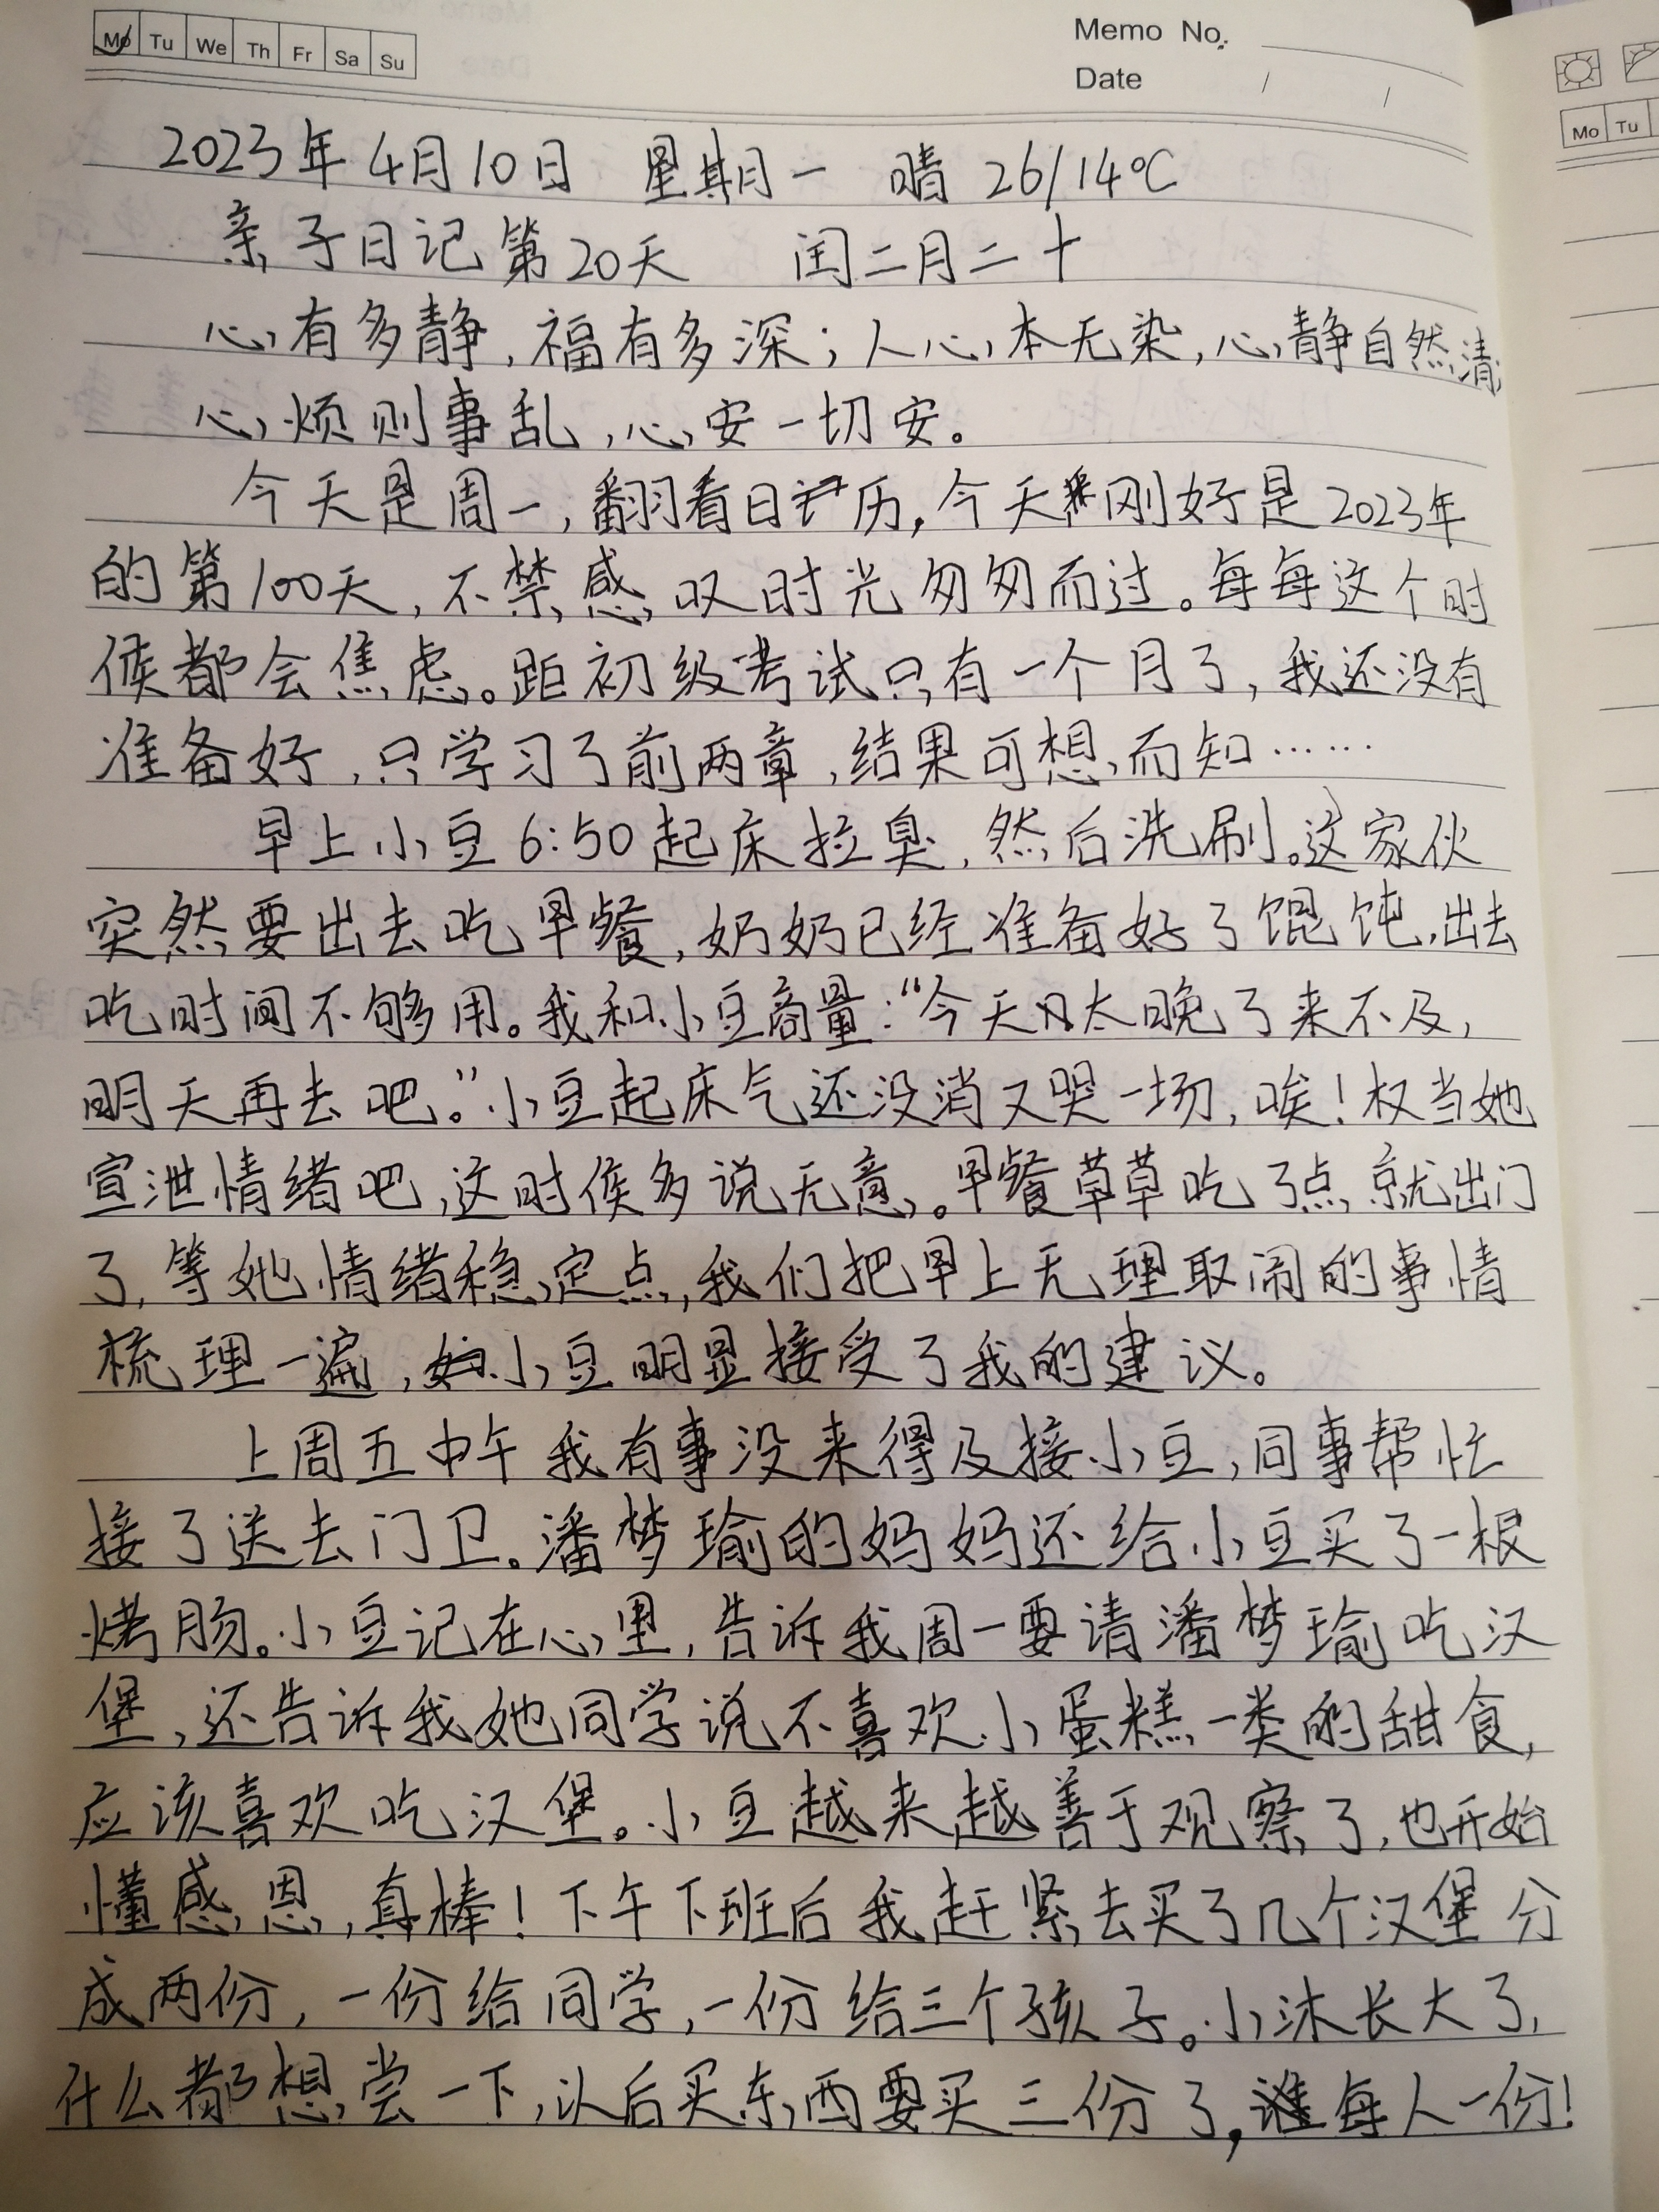 Mo Tu We Th Fr Sa Su
Memo No.
Date / /
Mo Tu
2023年4月10日 星期一 晴 26/14℃
亲子日记第20天 闰二月二十
心有多静,福有多深;人心本无染,心静自然清
心烦则事乱,心安一切安。
今天是周一,翻看日历,今天刚好是2023年
的第100天,不禁感叹时光匆匆而过。每每这个时
候都会焦虑。距初级考试只有一个月了,我还没有
准备好,只学习了前两章,结果可想而知……
早上小豆6:50起床拉臭,然后洗刷。这家伙
突然要出去吃早餐,奶奶已经准备好了馄饨,出去
吃时间不够用。我和小豆商量:“今天太晚了来不及,
明天再去吧。”小豆起床气还没消又哭一场,唉!权当她
宣泄情绪吧,这时候多说无意。早餐草草吃了点就出门
了,等她情绪稳定点,我们把早上无理取闹的事情
梳理一遍,小豆明显接受了我的建议。
上周五中午我有事没来得及接小豆,同事帮忙
接了送去门卫。潘梦瑜的妈妈还给小豆买了一根
烤肠。小豆记在心里,告诉我周一要请潘梦瑜吃汉
堡,还告诉我她同学说不喜欢小蛋糕一类的甜食,
应该喜欢吃汉堡。小豆越来越善于观察了,也开始
懂感恩,真棒!下午下班后我赶紧去买了几个汉堡分
成两份,一份给同学,一份给三个孩子。小沐长大了,
什么都想尝一下,以后买东西要买三份了,每人一份!